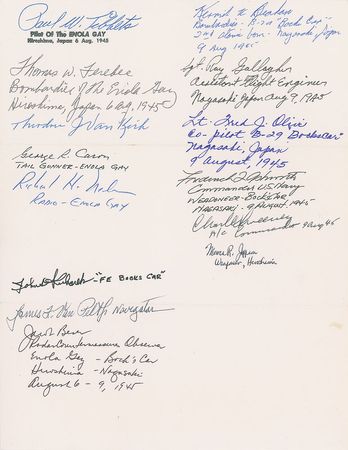 Paul W. Tibbets
Pilot Of The ENOLA GAY
Hiroshima, Japan 6 Aug. 1945
Thomas W. Ferebee
Bombardier of the Enola Gay
Hiroshima, Japan 6 Aug, 1945
Theodore J Van Kirk
George R. Caron
TAIL GUNNER - ENOLA GAY
Richard H. Nelson
RADIO - ENOLA GAY
John D Kuharek - "FE BOCKS CAR"
James F. Van Pelt Jr Navigator
Jacob Beser
Radar Countermeasure Observer
Enola Gay - Bock's Car
Hiroshima - Nagasaki
August 6 - 9, 1945
Kermit K Beahan
Bombardier - B-29 "Bocks Car"
2nd atomic bomb - Nagasaki Japan
9 Aug 1945
Sgt Ray Gallagher
Assistant Flight Engineer
Nagasaki Japan Aug 9, 1945
Lt. Fred J. Olivi
Co-pilot B-29 Bockscar
Nagasaki, Japan
9 August, 1945
Frederick L Ashworth
Commander US Navy
WEAPONEER - BOCK'S CAR
NAGASAKI - 9 AUGUST 1945
Charles Sweeney
A/C Commander 9 Aug 45
Morris R. Jeppson
Weaponeer, Hiroshima